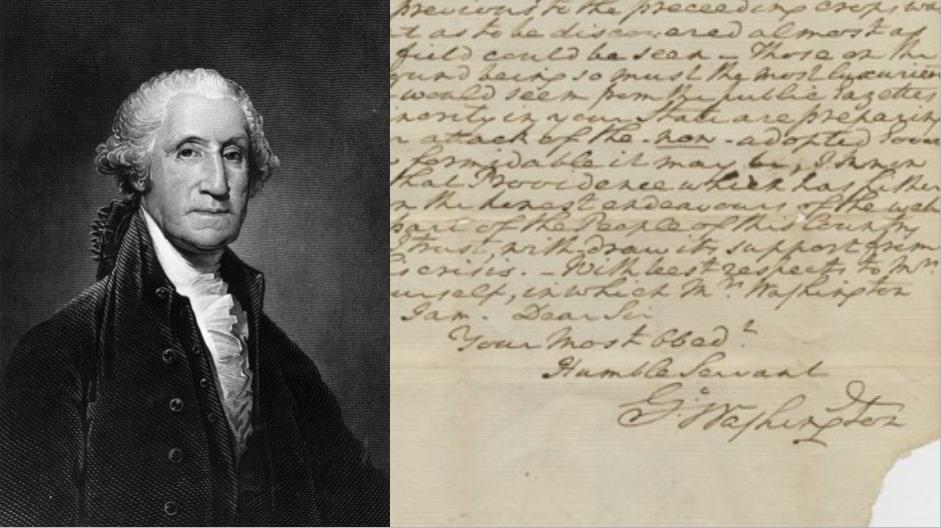 previous to the preceeding crops wa
t as to be discovered almost as
field could be seen – Those on the
ound being so must the most luxurien
would seem from the public Gazettes
nority in your State are preparing
attack of the - now - adopted Gove
formidable it may be, I
that Providence which has hither
n the honest endeavours of the wel
part of the People of this Country
I trust, withdraw its support from
s crisis. – With best respects to Mrs.
urself, in which Mrs. Washington
I am – Dear Sir
Your Most Obedt.
Humble Servant
Go. Washington